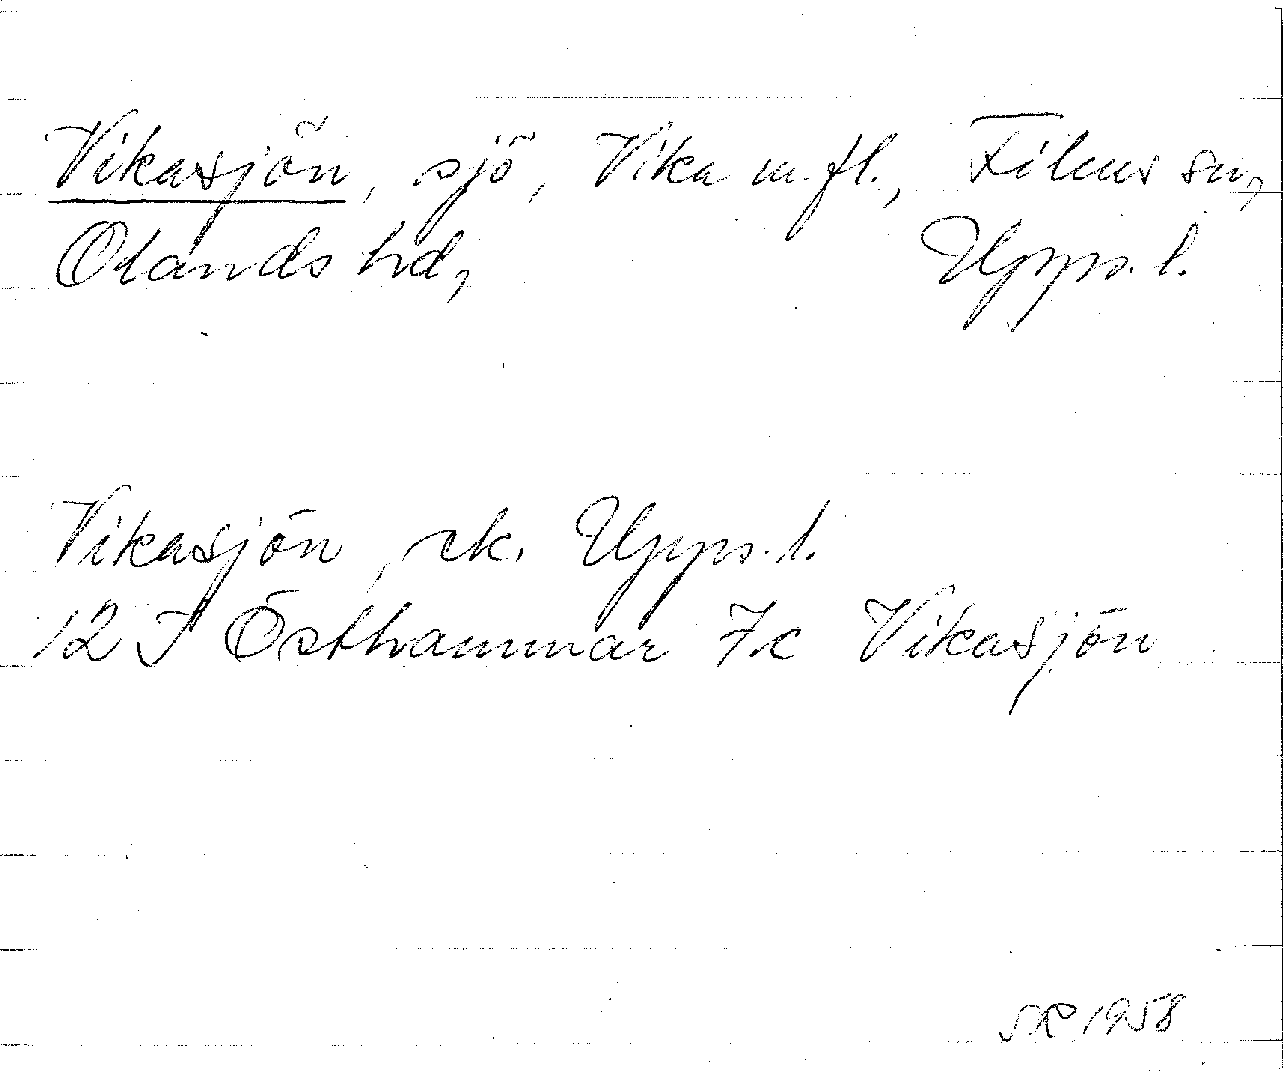 Vikasjön, sjö, Vika m.fl., Films sn,
Olands hd, Upps.l.
Vikasjön, ek. Upps.l.
12 I Östhammar 7c Vikasjön
SR 1958